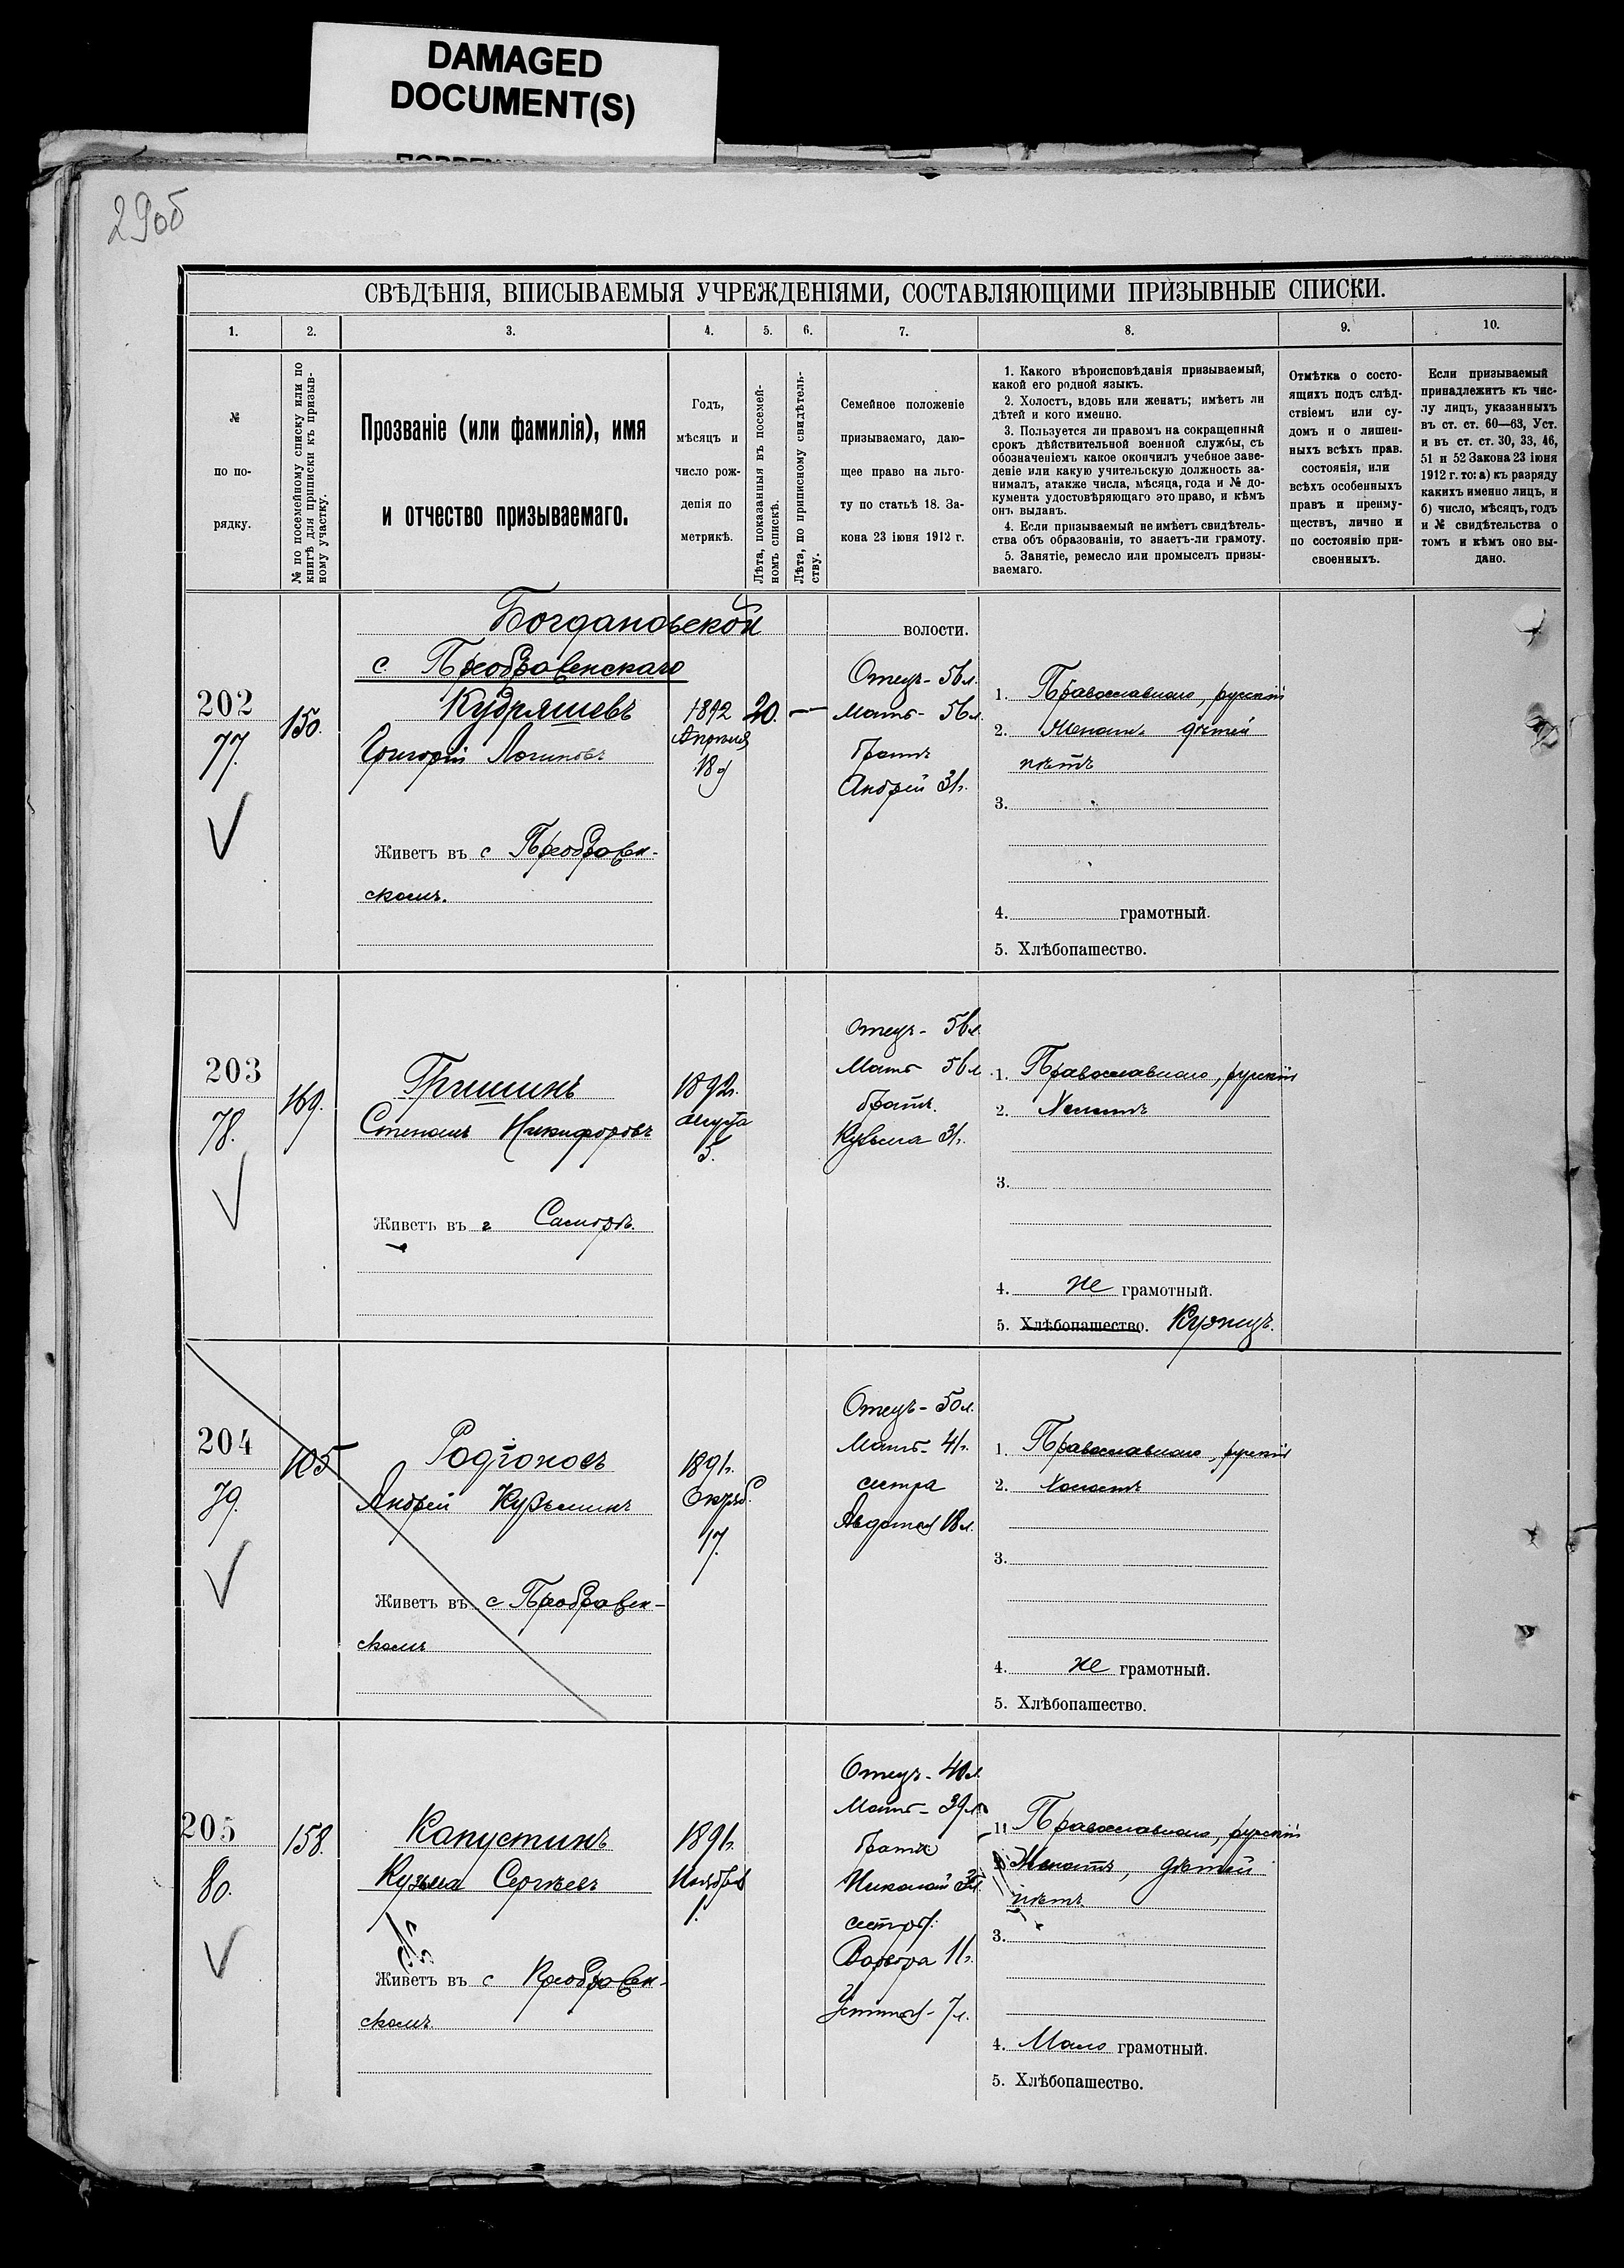 DAMAGED
DOCUMENT(S)
29об
СВѢДѢНІЯ, ВПИСЫВАЕМЫЯ УЧРЕЖДЕНІЯМИ, СОСТАВЛЯЮЩИМИ ПРИЗЫВНЫЕ СПИСКИ.
1. 2. 3. 4. 5. 6. 7. 8. 9. 10.
№
по по-
рядку.
№ по посемейному списку или по
книгѣ для приписки къ призыв-
ному участку.
Прозваніе (или фамилія), имя
и отчество призываемаго.
Годъ,
мѣсяцъ и
число рож-
денія по
метрикѣ.
Лѣта, показанныя въ посемей-
номъ спискѣ.
Лѣта, по приписному свидѣтель-
ству.
Семейное положеніе
призываемаго, даю-
щее право на льго-
ту по статьѣ 18. За-
кона 23 іюня 1912 г.
1. Какого вѣроисповѣданія призываемый,
какой его родной языкъ.
2. Холостъ, вдовъ или женатъ; имѣетъ ли
дѣтей и кого именно.
3. Пользуется ли правомъ на сокращенный
срокъ дѣйствительной военной службы, съ
обозначеніемъ какое окончилъ учебное заве-
деніе или какую учительскую должность за-
нималъ, атакже числа, мѣсяца, года и № до-
кумента удостовѣряющаго это право, и кѣмъ
онъ выданъ.
4. Если призываемый не имѣетъ свидѣтель-
ства объ образованіи, то знаетъ-ли грамоту.
5. Занятіе, ремесло или промыселъ призы-
ваемаго.
Отмѣтка о состо-
ящихъ подъ слѣд-
ствіемъ или су-
домъ и о лишен-
ныхъ всѣхъ прав.
состоянія, или
всѣхъ особенныхъ
правъ и преиму-
ществъ, лично и
по состоянію при-
своенныхъ.
Если призываемый
принадлежитъ къ чис-
лу лицъ, указанныхъ
въ ст. ст. 60—63, Уст.
и въ ст. ст. 30, 33, 46,
51 и 52 Закона 23 іюня
1912 г. то: а) къ разряду
какихъ именно лицъ, и
б) число, мѣсяцъ, годъ
и № свидѣтельства о
томъ и кѣмъ оно вы-
дано.
Богдановской волости.
с. Преображенскаго
202
77.
150.
Кудряшевъ
Григорій Логиновъ
Живетъ въ с Преображен-
скомъ.
1892
Апрѣля
18
20.
—
Отецъ - 56 л.
Мать - 56 л.
братъ
Андрей 31 г.
1. Православнаго, русскій
2. Женатъ дѣтей
нѣтъ
3.
4. грамотный.
5. Хлѣбопашество.
203
78.
169.
Гришинъ
Степанъ Никифоровъ
Живетъ въ г Самарѣ.
1892 г.
августа
5.
Отецъ - 56 л
Мать 56 л
братъ.
Кузьма 31 г.
1. Православнаго, русскій
2. Холостъ
3.
4. не грамотный.
5. Хлѣбопашество. Кузнецъ.
204
79.
105
Родіоновъ
Андрей Кузьминъ
Живетъ въ с Преображен-
скомъ
1891 г.
Октяб.
17.
Отецъ - 50 л.
Мать - 41 г.
сестра
Авдотья 18 л.
1. Православнаго, русскій
2. Холостъ
3.
4. не грамотный.
5. Хлѣбопашество.
205
80.
158.
Капустинъ
Кузьма Сергѣевъ
Живетъ въ с Преображен-
скомъ
1891 г.
Ноября
1.
Отецъ - 40 л.
Мать - 39 л
братъ
Николай
сестры:
Варвара 11 г.
Устинья - 7 л.
1. Православнаго, русскій
2. Женатъ, дѣтей
нѣтъ.
3.
4. Мало грамотный.
5. Хлѣбопашество.